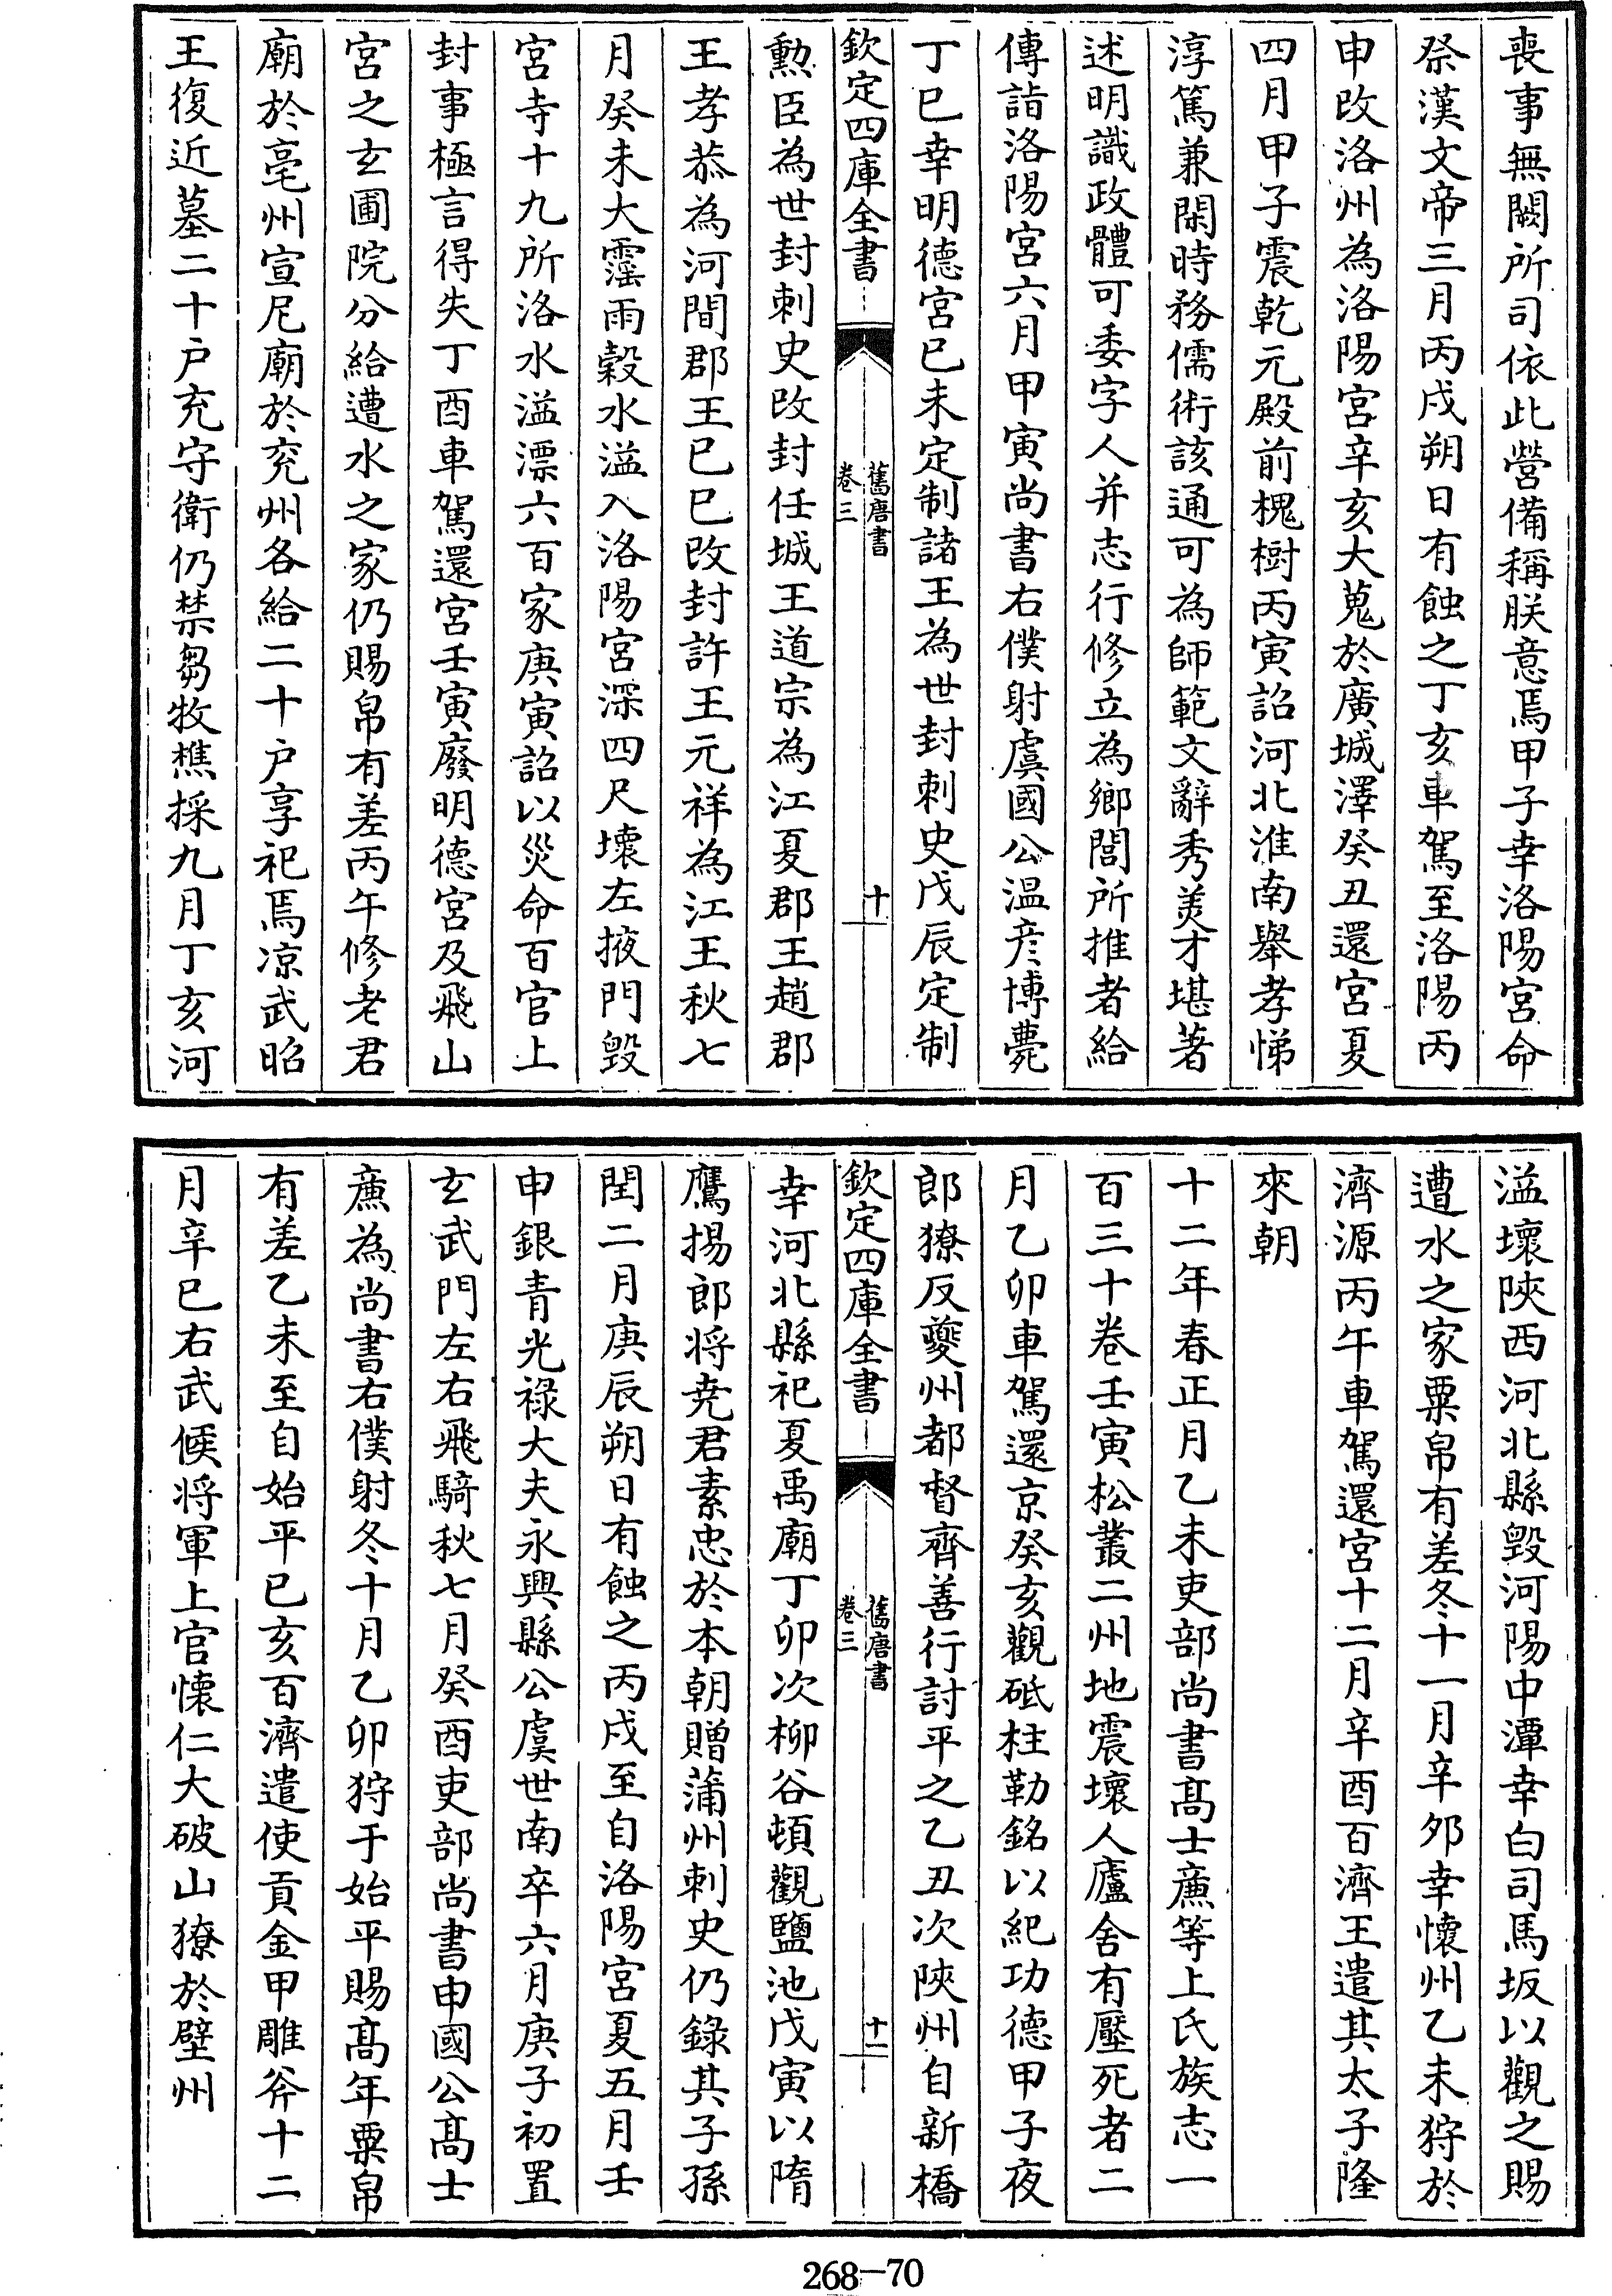 喪事無闕所司依此營備稱朕意焉甲子幸洛陽宮命
祭漢文帝三月丙戌朔日有蝕之丁亥車駕至洛陽丙
申改洛州為洛陽宮辛亥大蒐於廣城澤癸丑還宮夏
四月甲子震乾元殿前槐樹丙寅詔河北淮南舉孝悌
淳篤兼閑時務儒術該通可為師範文辭秀美才堪著
述明識政體可委字人并志行修立為鄉閭所推者給
傳詣洛陽宮六月甲寅尚書右僕射虞國公温彦博薨
丁巳幸明德宮巳未定制諸王為世封刺史戊辰定制
欽定四庫全書
舊唐書
卷三
十
勲臣為世封刺史改封任城王道宗為江夏郡王趙郡
王孝恭為河間郡王巳巳改封許王元祥為江王秋七
月癸未大霪雨穀水溢入洛陽宮深四尺壞左掖門毀
宮寺十九所洛水溢漂六百家庚寅詔以災命百官上
封事極言得失丁酉車駕還宮壬寅廢明德宮及飛山
宮之玄圃院分給遭水之家仍賜帛有差丙午修老君
廟於亳州宣尼廟於兖州各給二十户享祀焉凉武昭
王復近墓二十户充守衛仍禁芻牧樵採九月丁亥河
溢壞陜西河北縣毀河陽中潭幸白司馬坂以觀之賜
遭水之家粟帛有差冬十一月辛夘幸懷州乙未狩於
濟源丙午車駕還宮十二月辛酉百濟王遣其太子隆
來朝
十二年春正月乙未吏部尚書髙士亷等上氏族志一
百三十卷壬寅松叢二州地震壞人廬舍有壓死者二
月乙卯車駕還京癸亥觀砥柱勒銘以紀功德甲子夜
郎獠反夔州都督齊善行討平之乙丑次陜州自新橋
欽定四庫全書
舊唐書
卷三
十一
幸河北縣祀夏禹廟丁卯次柳谷頓觀鹽池戊寅以隋
鷹揚郎将尭君素忠於本朝贈蒲州刺史仍錄其子孫
閏二月庚辰朔日有蝕之丙戌至自洛陽宮夏五月壬
申銀青光禄大夫永興縣公虞世南卒六月庚子初置
玄武門左右飛騎秋七月癸酉吏部尚書申國公髙士
亷為尚書右僕射冬十月乙卯狩于始平賜髙年粟帛
有差乙未至自始平巳亥百濟遣使貢金甲雕斧十二
月辛巳右武候将軍上官懐仁大破山獠於壁州
268-70